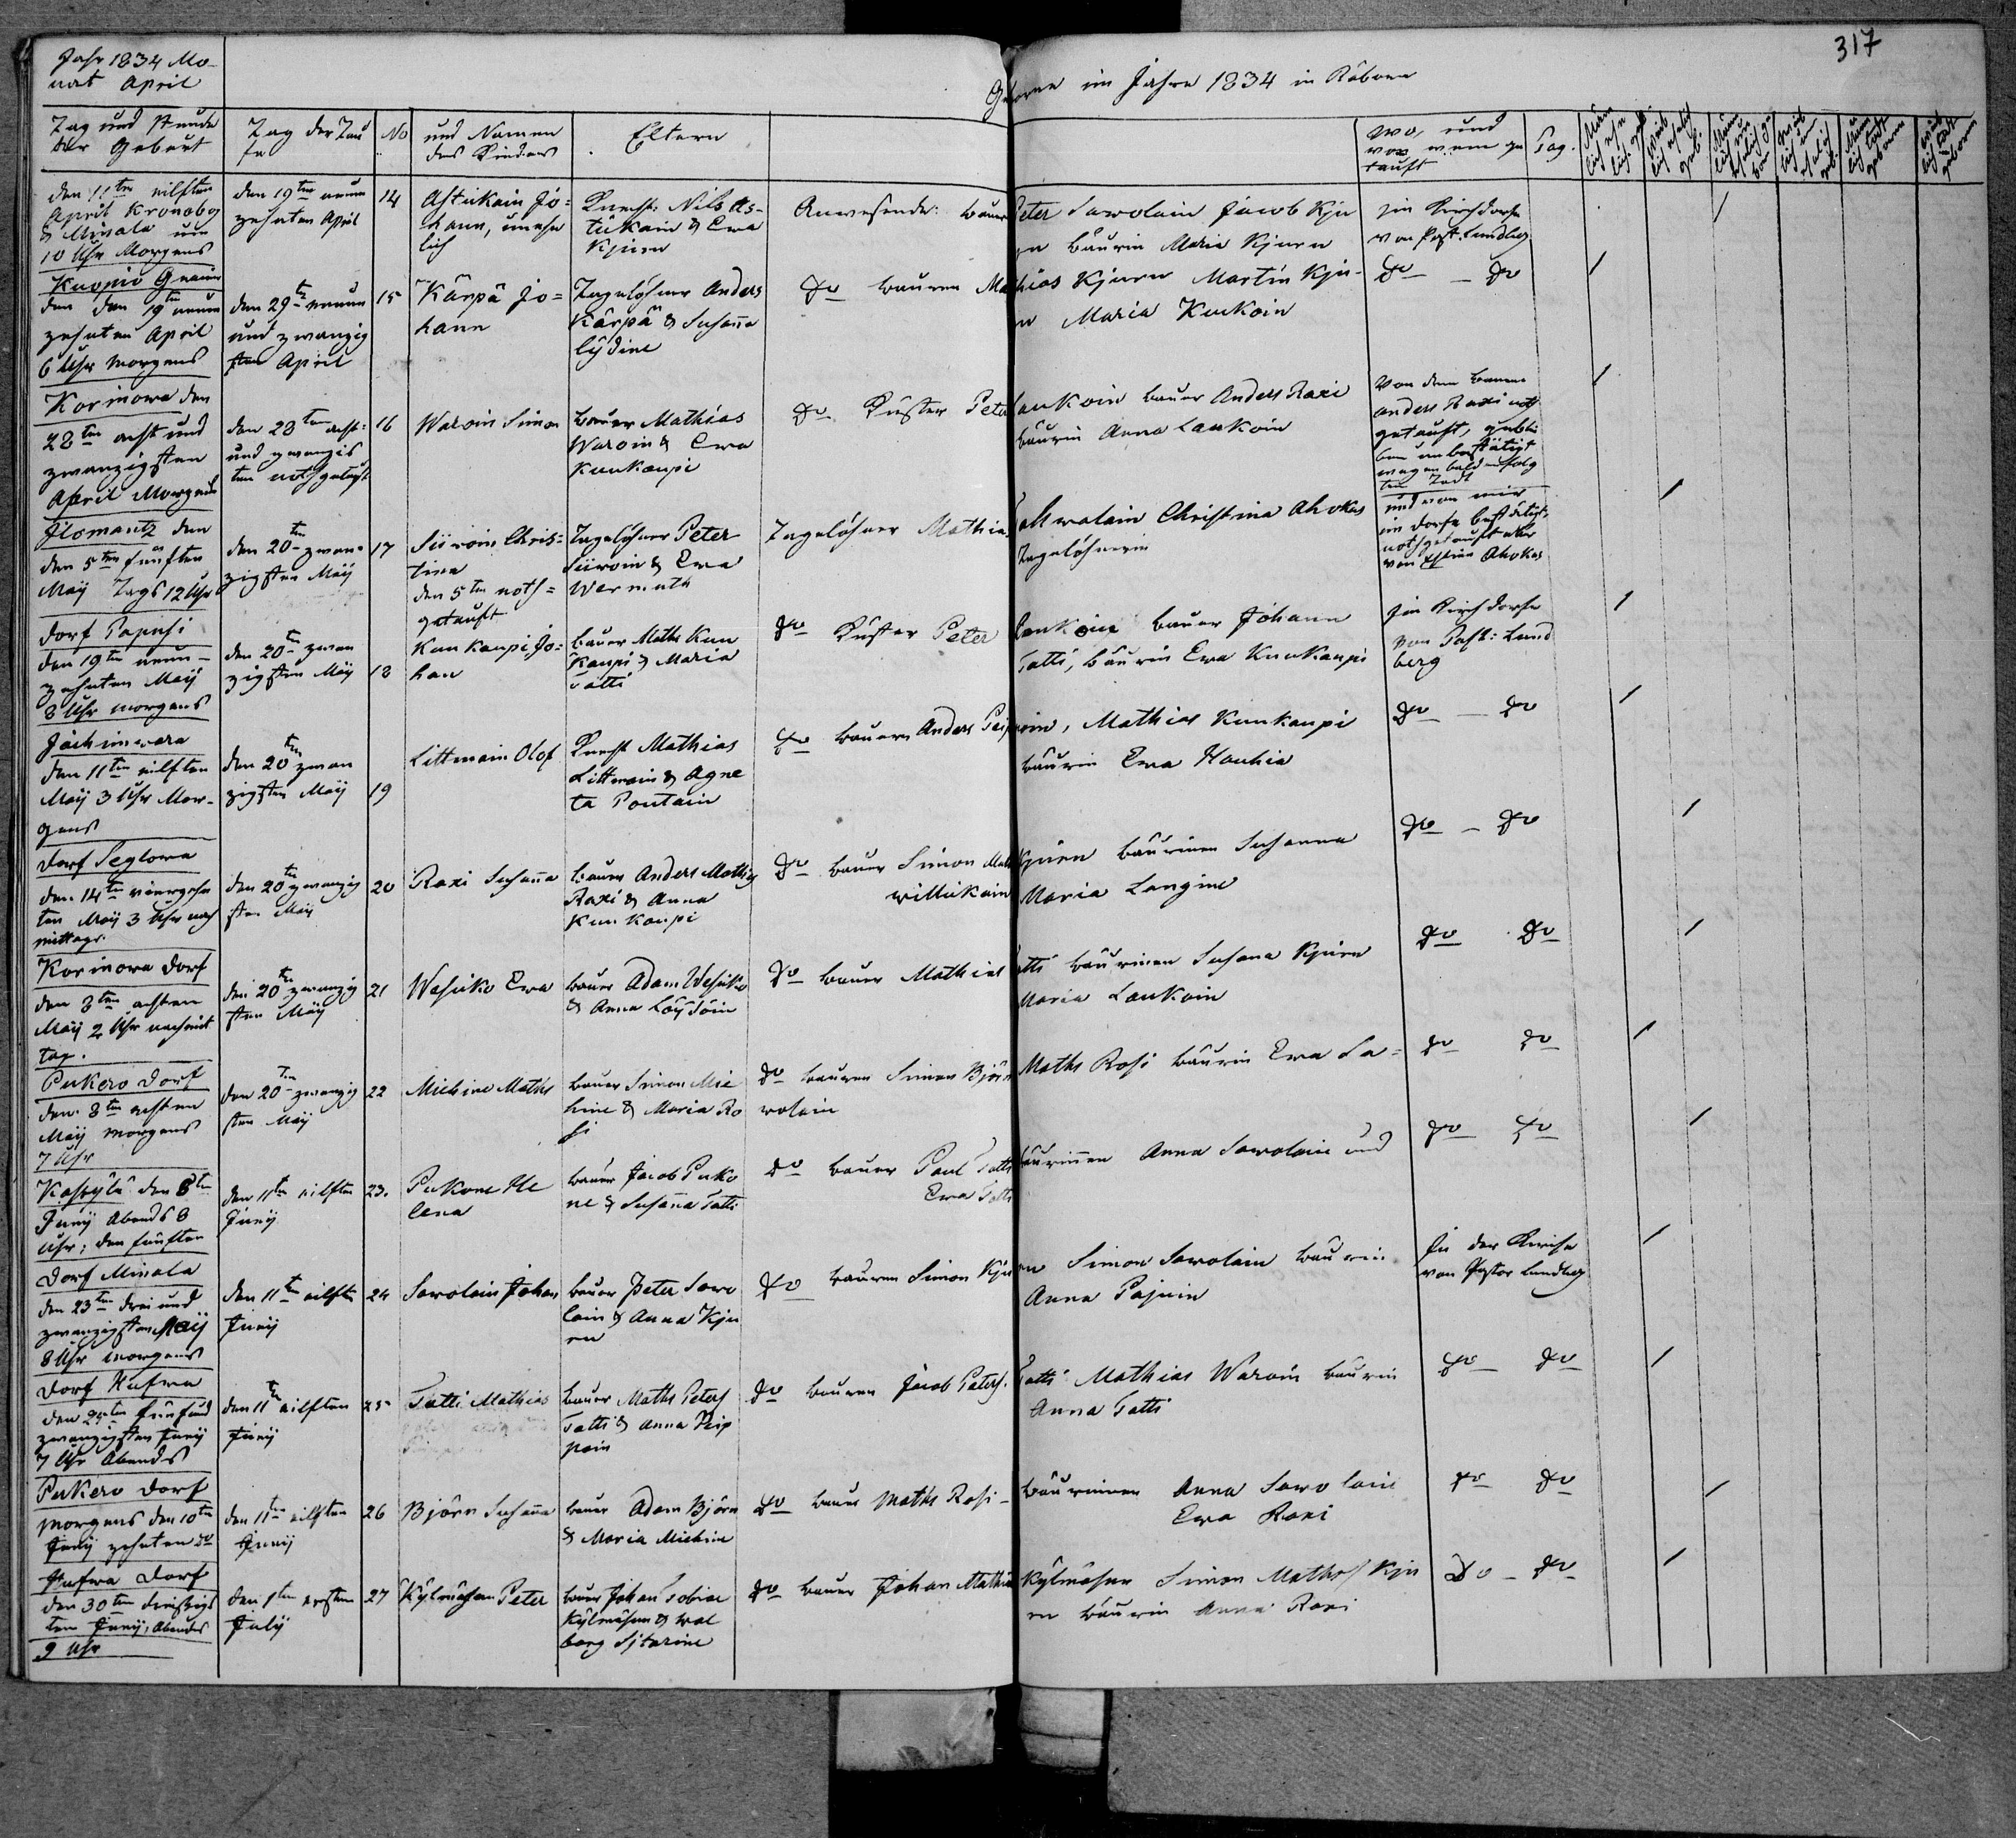 317
Jahr 1834 Mo-
nat April
Geborne im Jahre 1834 in Räbova
Tag und Stunde
der Geburt
Tag der Tau
fe
No
und Namen
des Kindes
Eltern
wo, und
von wem ge
tauft
Tag.
den 11ten eilften
April Kronobog
& Minala um
10 Uhr Morgens
den 19ten neun
zehnten April
14
Astukain Jo=
hann, unehe
lich
Knecht Nils As-
tukain & Ewa
Kjuren
Anwesende: Bauer Peter Sawolain Jacob Kju
en Bäurin Maria Kjuren
im Kirchdorfe
von Past. Lundberg
Kuopio Gemein
den den 19ten neun
zehnten April
6 Uhr Morgens
den 29ten neun
und zwanzig
sten April
15
Kärpä Jo=
hann
Tagelöhner Anders
Kärpä & Susaña
Lydine
Do Bauren Mathias Kjuren Martin Kju-
en Maria Kukoin
Do - Do
Korinowa den
28ten acht und
zwanzigsten
April Morgens
den 28ten acht=
und zwanzigs
ten nothgetauft
16
Waroin Simon
Bauer Mathias
Waroin & Ewa
Kunkaupi
Do Küster Peter Laukoin Bauer Anders Raxi
Bäurin Anna Laukoin
Von dem Bauern
Anders Raxi noth
getauft, geblie
ben unbestätigt
wegen bald erfolg
ten Todt
Ilomantz den
den 5ten fünften
May Tags 12 Uhr
den 20ten zwan-
zigsten May
17
Siiroin Chris=
tina
den 5ten noth=
getauft
Tagelöhner Peter
Siiroin & Ewa
Wermuth
Tagelöhner Mathias Tahwalain Christina Ahokas
Tagelöhnerin
und von mir
im Dorfe bestätigt
nothgetauft aber
von Stina Ahokas
Dorf Papusi
den 19ten neun-
zehnten May
8 Uhr Morgens
den 20ten zwan
zigsten May
18
Kunkaupi Jo=
han
Bauer Maths Kun
kaupi & Maria
Tatti
Do Küster Peter Laukoin Bauer Johann
Tatti, Bäurin Ewa Kunkaupi
im Kirchdorfe
von Past: Lund
berg
Joachimwara
den 11ten eilften
May 3 Uhr Mor-
gens
den 20ten zwan
zigsten May
19
Littmain Olof
Knecht Mathias
Littmain & Agne
ta Pontain
Do Bauern Anders Peipoin, Mathias Kunkaupi
Bäurin Ewa Haukia
Do - Do
Dorf Seglowa
den 14ten vierzehn
ten May 3 Uhr nach
mittags.
den 20ten zwanzig
sten May
20
Raxi Susaña
Bauer Anders Mathias
Raxi & Anna
Kunkaupi
Do Bauer Simon Maths Kjuren Bäurinen Susanna
Willukain Maria Langine
Do - Do
Korinowa Dorf
den 8ten achten
May 2 Uhr nachmit
tag.
den 20ten zwanzig
sten May
21
Wesuko Ewa
Bauer Adam Wesuko
& Anna Löydöin
Do Bauer Mathias Tatti Bäurinen Susana Kjuren
Maria Laukoin
Do Do
Pukero Dorf
den 8ten achten
May Morgens
7 Uhr
den 20ten zwanzig
sten May
22
Michine Maths
Bauer Simon Mic
hine & Maria Ro
si
Do Bauren Simon Björn Maths Rosi Bäurin Ewa Sa=
wolain
Do Do
Kaskylä den 5ten
Juny Abends 8
Uhr; den fünften
den 11ten eilften
Juny
23.
Pukone He
lena
Bauer Jacob Puko
ne & Susaña Tatti
Do Bauer Paul Tatti Bäurinnen Anna Sawolain und
Ewa Tatti
Do Do
Dorf Minala
den 23ten drei und
zwanzigsten May
8 Uhr Morgens
den 11ten eilften
Juny
24
Sawolain Johan
Bauer Peter Sawo
lain & Anna Kju
ren
Do Bauren Simon Kjuren Simon Sawolain Bäurin
Anna Pajuin
In der Kirche
von Pastor Lundberg
Dorf Hafwa
den 25ten fünf und
zwanzigsten Juny
7 Uhr Abends
den 11ten eilften
Juny
25
Tatti Mathias
Bauer Maths Peters
Tatti & Anna Peip
poin
Do Bauren Jacob Peters. Tatti Mathias Waroin Bäurin
Anna Tatti
Do Do
Pukero Dorf
Morgens den 10ten
Juny zehnten do
den 11ten eilften
Juny
26
Björn Susaña
Bauer Adam Björn
& Maria Michine
Do Bauer Maths Rosi- Bäurinnen Anna Sawolain
Ewa Raxi
Do Do
Hafwa Dorf
den 30ten dreissigs
ten Juny, Abends
9 Uhr
den 1ten ersten
July
27
Kylmähsen Peter
Bauer Johan Tobias
Kylmähsen & Wal
borg Sjtarine
Do Bauer Johan Mathias Kylmähsen Simon Maths Kju
en Bäurin Anna Raxi
Do - Do